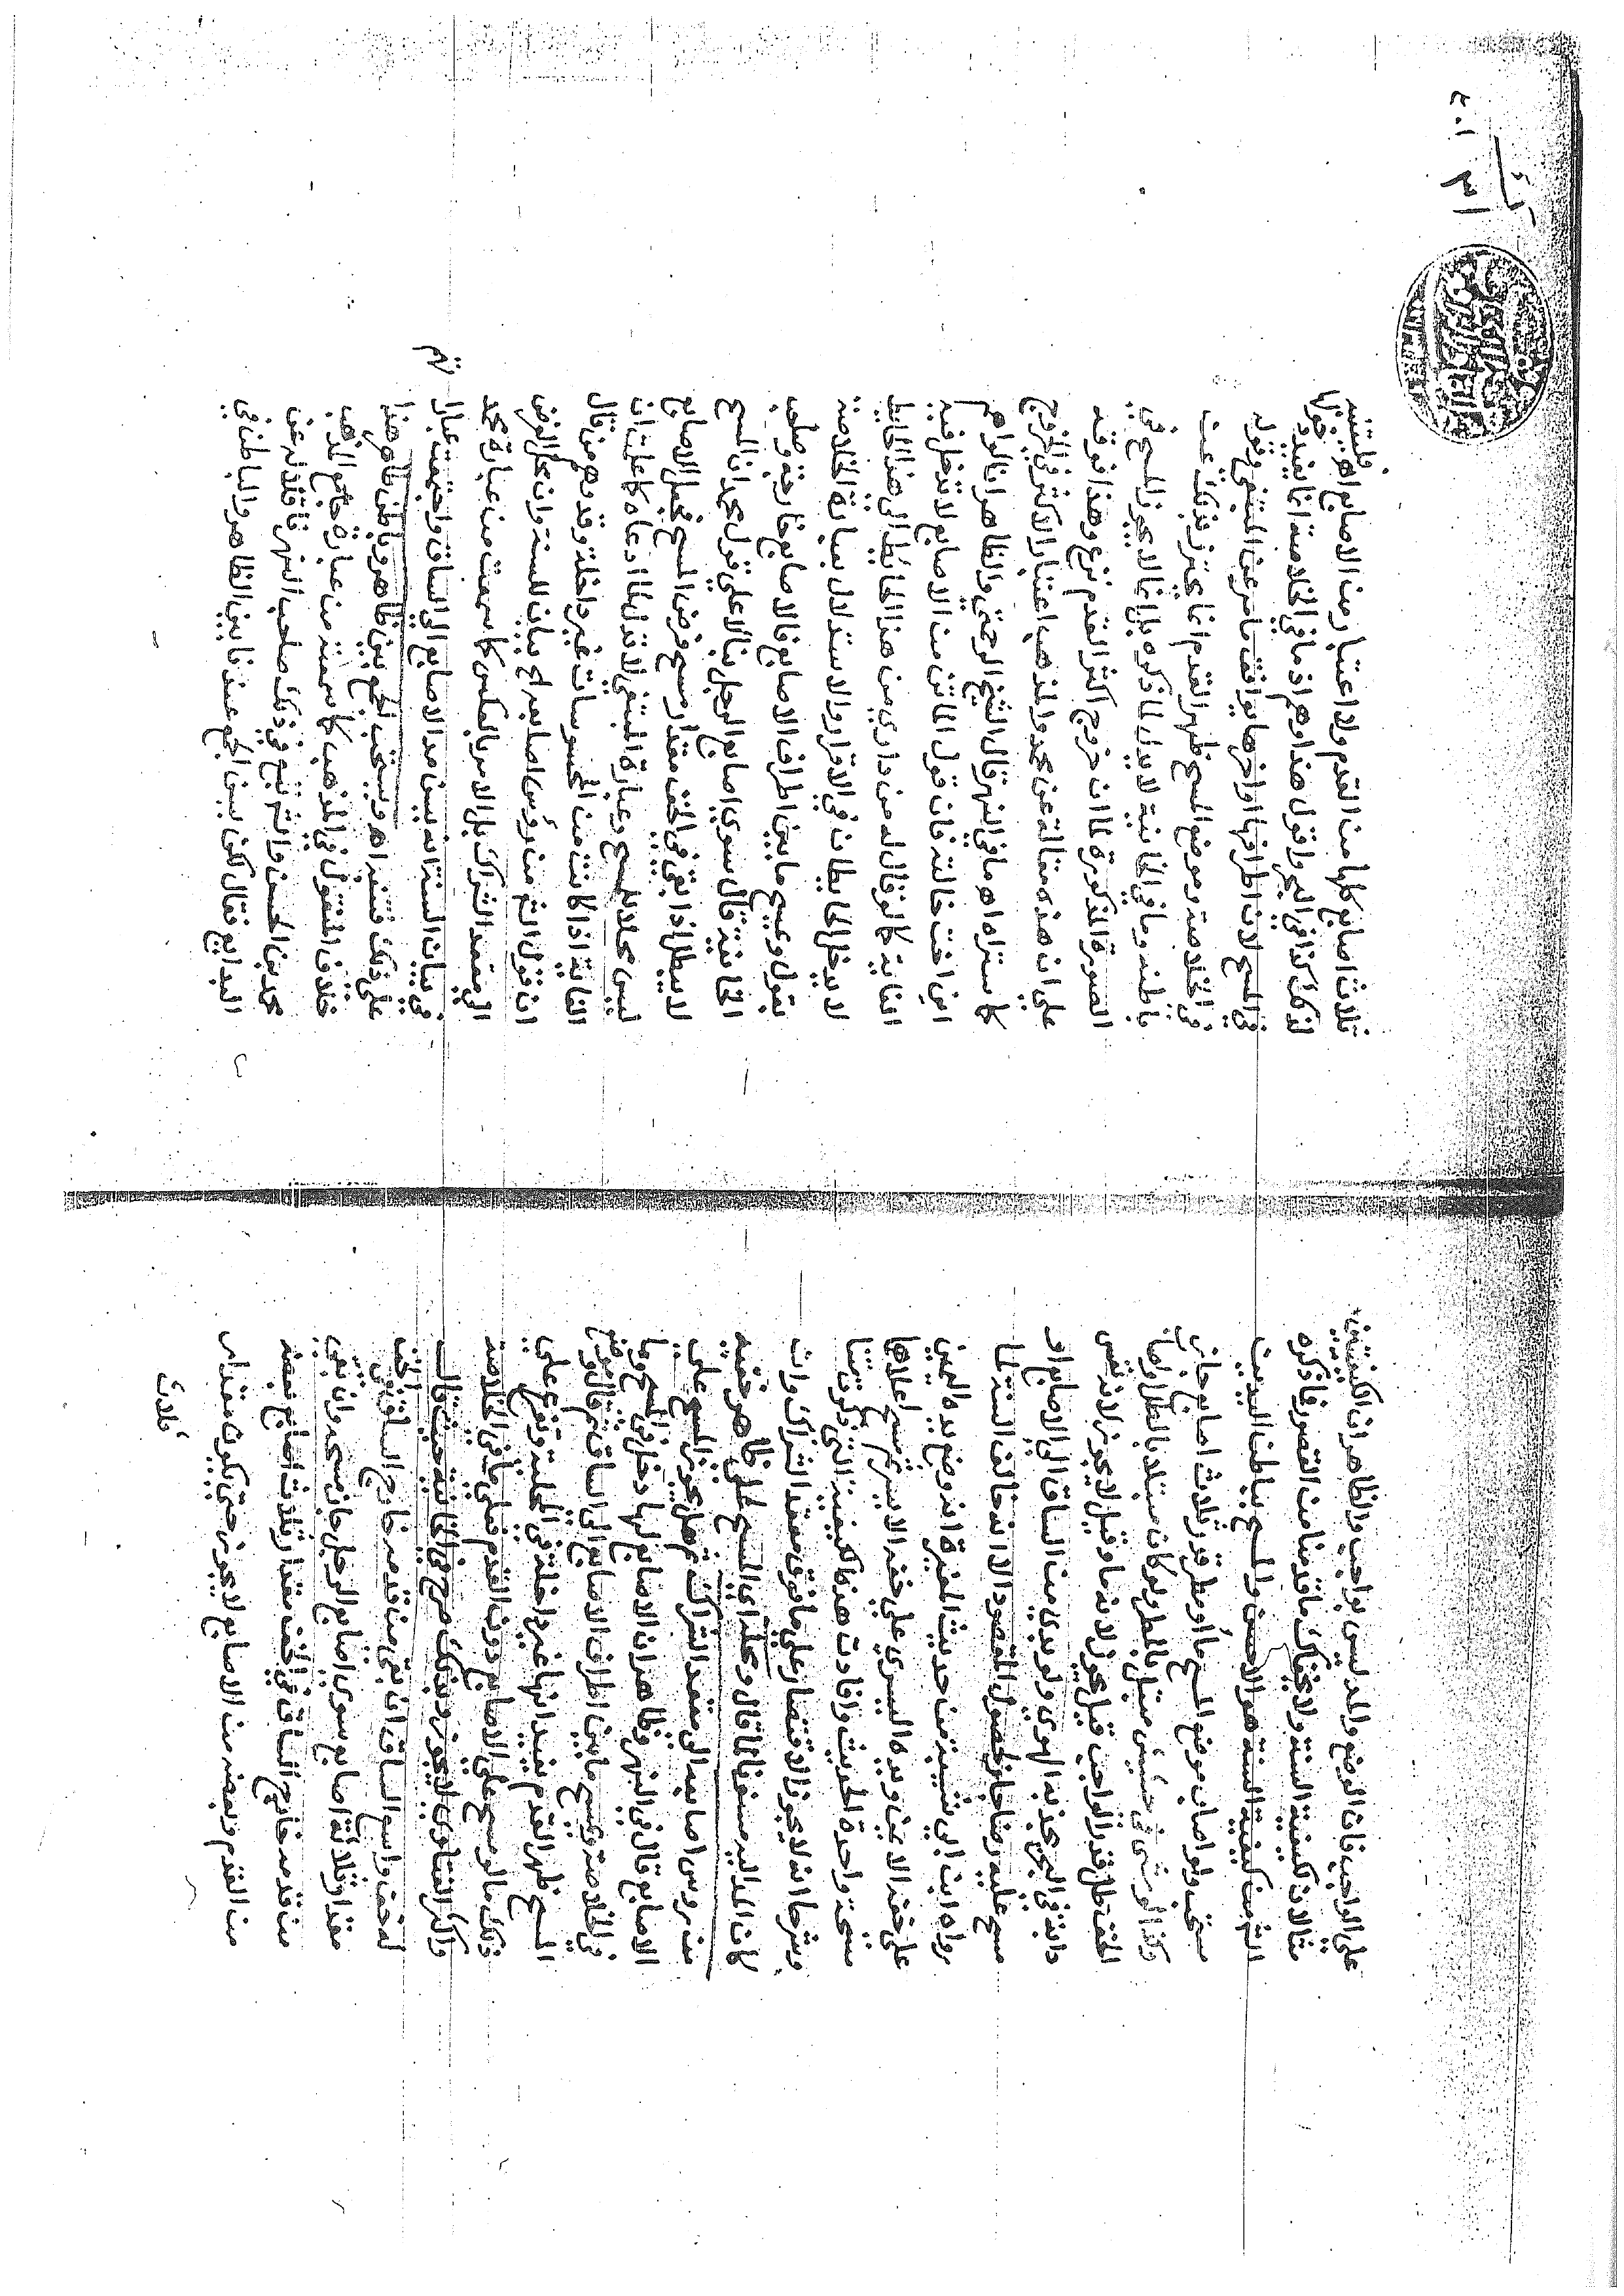 على الواجب فان الوضع والمد ليس بواجب والظاهر ان الكيفيتين
مثالان لكيفية السنة ولا يخفاك ما قدمنا من القصور فاذكره
اثم من كيفية السنة هو الاحسن والمسح بباطن اليد يت
مستحب ولو اصاب موضع المسح ماء او مطر قدر ثلاث اصابع جاز
وكذا لو مشى في حشيش مبتل بالمطر ولو كان مبتلا بالطل واصاب
الخف طل قدر الواجب قيل يجوز لانه ماء وقيل لا يجوز لانه نفس
دابة في البحر يجذبه الهوى ولو بدى من الساق الى الاصابع او
مسح عليه عرضا جاز لحصول المقصود الا انه خالف السنة لما
رواه ابن ابي شيبة من حديث المغيرة انه وضع يده اليمين
على خفه الايمن ويده اليسرى على خفه الايسر ثم مسح اعلاهما
مسحة واحدة الحديث وافادت هذه الكيفية التي ذكرت متنا
وشرحا انه لا يجوز الاقتصار على ما فوق معقد الشراك وان
كان المد اليه مسنونا لما قال ومحله اي المسح على ظاهر خفيه
من روس اصابعه الى معقد الشراك ثم هل يجوز المسح على
الاصابع قال في النهر وظاهر ان الاصابع لها دخل في المسح وما
في الخلاصة ويمسح ما بين اطراف الاصابع الى الساق ثم قال وموضع
المسح ظهر القدم يفيد انها غير داخلة في المحلية وتفرع على
ذلك ما لو مسح على الاصابع دون القدم فعلى ما في الخلاصة
واكثر الفتاوى لا يجوز وبذلك صرح في الخانية حيث قالب
له خف واسع الساق ان بقي من قدمه خارج الساق في الخف
مقدار ثلاثة اصابع سوى اصابع الرجل جاز مسحه وان بقي
من قدمه خارج الساق في الخف مقدار ثلاث اصابع بعضه
من القدم وبعضه من الاصابع لا يجوز حتى يكون مقدار
ثلاث
ثلاث اصابع كلها من القدم ولا اعتبار من الاصابع اهـ فلتنبه
لذلك كذا في البحر واقول هذا وهم اذ ما في الخلاصة انما يفيد دخولها
في المسح لان اطرافها اواخرها يوافق ما مر عن المبتغى وقوله
في الخلاصة وموضع المسح ظهر القدم انما يحترز بذلك عن
باطنه وما في الخانية لا يدل لما ذكره بل انما لا يجوز المسح في
الصورة المذكورة لما ان خروج اكثر القدم نزع وهذا فوقه
على ان هذه مقالة عن محمد والمذهب اعتبار الاكثر في الخروج
كما ستراه اهـ ما في النهر قال الشيخ الرحمتي والظاهر انه الواهم
اين اخت خالته فان قول الماتن من الاصابع لا تدخل فيه
الغاية كما لو قال له من داري من هذا الحائط الى هذا الحائط
لا يدخل الحائطان في الاقرار والاستدلال بعبارة الخلاصة
بقول ويمسح ما بين اطراف الاصابع فالاصابع خارجة وصاحب
الخانية قال سوى اصابع الرجل بناء على قول محمد ان المسح
لا يبطل اذا بقي في الخف مقدار مسح فرض المسح فجعل الاصابع
ليس محلا للمسح وعبارة المبتغى لا تدل لما ادعاه كما علمت ان
الغاية اذا كانت من المحسوسات غير داخلة وقد وهم من قال
ان قول الثم من روس اصابعه الخ بيان للسنة وان محل الفرض
الى معقد الشراك بل الامر بالعكس كما سمعت من عبارة محمد
في بيان السنة انه يبين مد الاصابع الى الساق واجتمعت عبارا تهم
على ذلك فتنبه اهـ ويستحب الجمع بين ظاهر وباطن ظاهر هذا
خلاف المنقول في المذهب كما سمعته من عبارة جامع المذهب
محمد بن الحسن والثم تبع في ذلك صاحب النهر ناقلا له عن
البدايع فقال لكن يسن الجمع عندنا بين الظاهر والباطن في